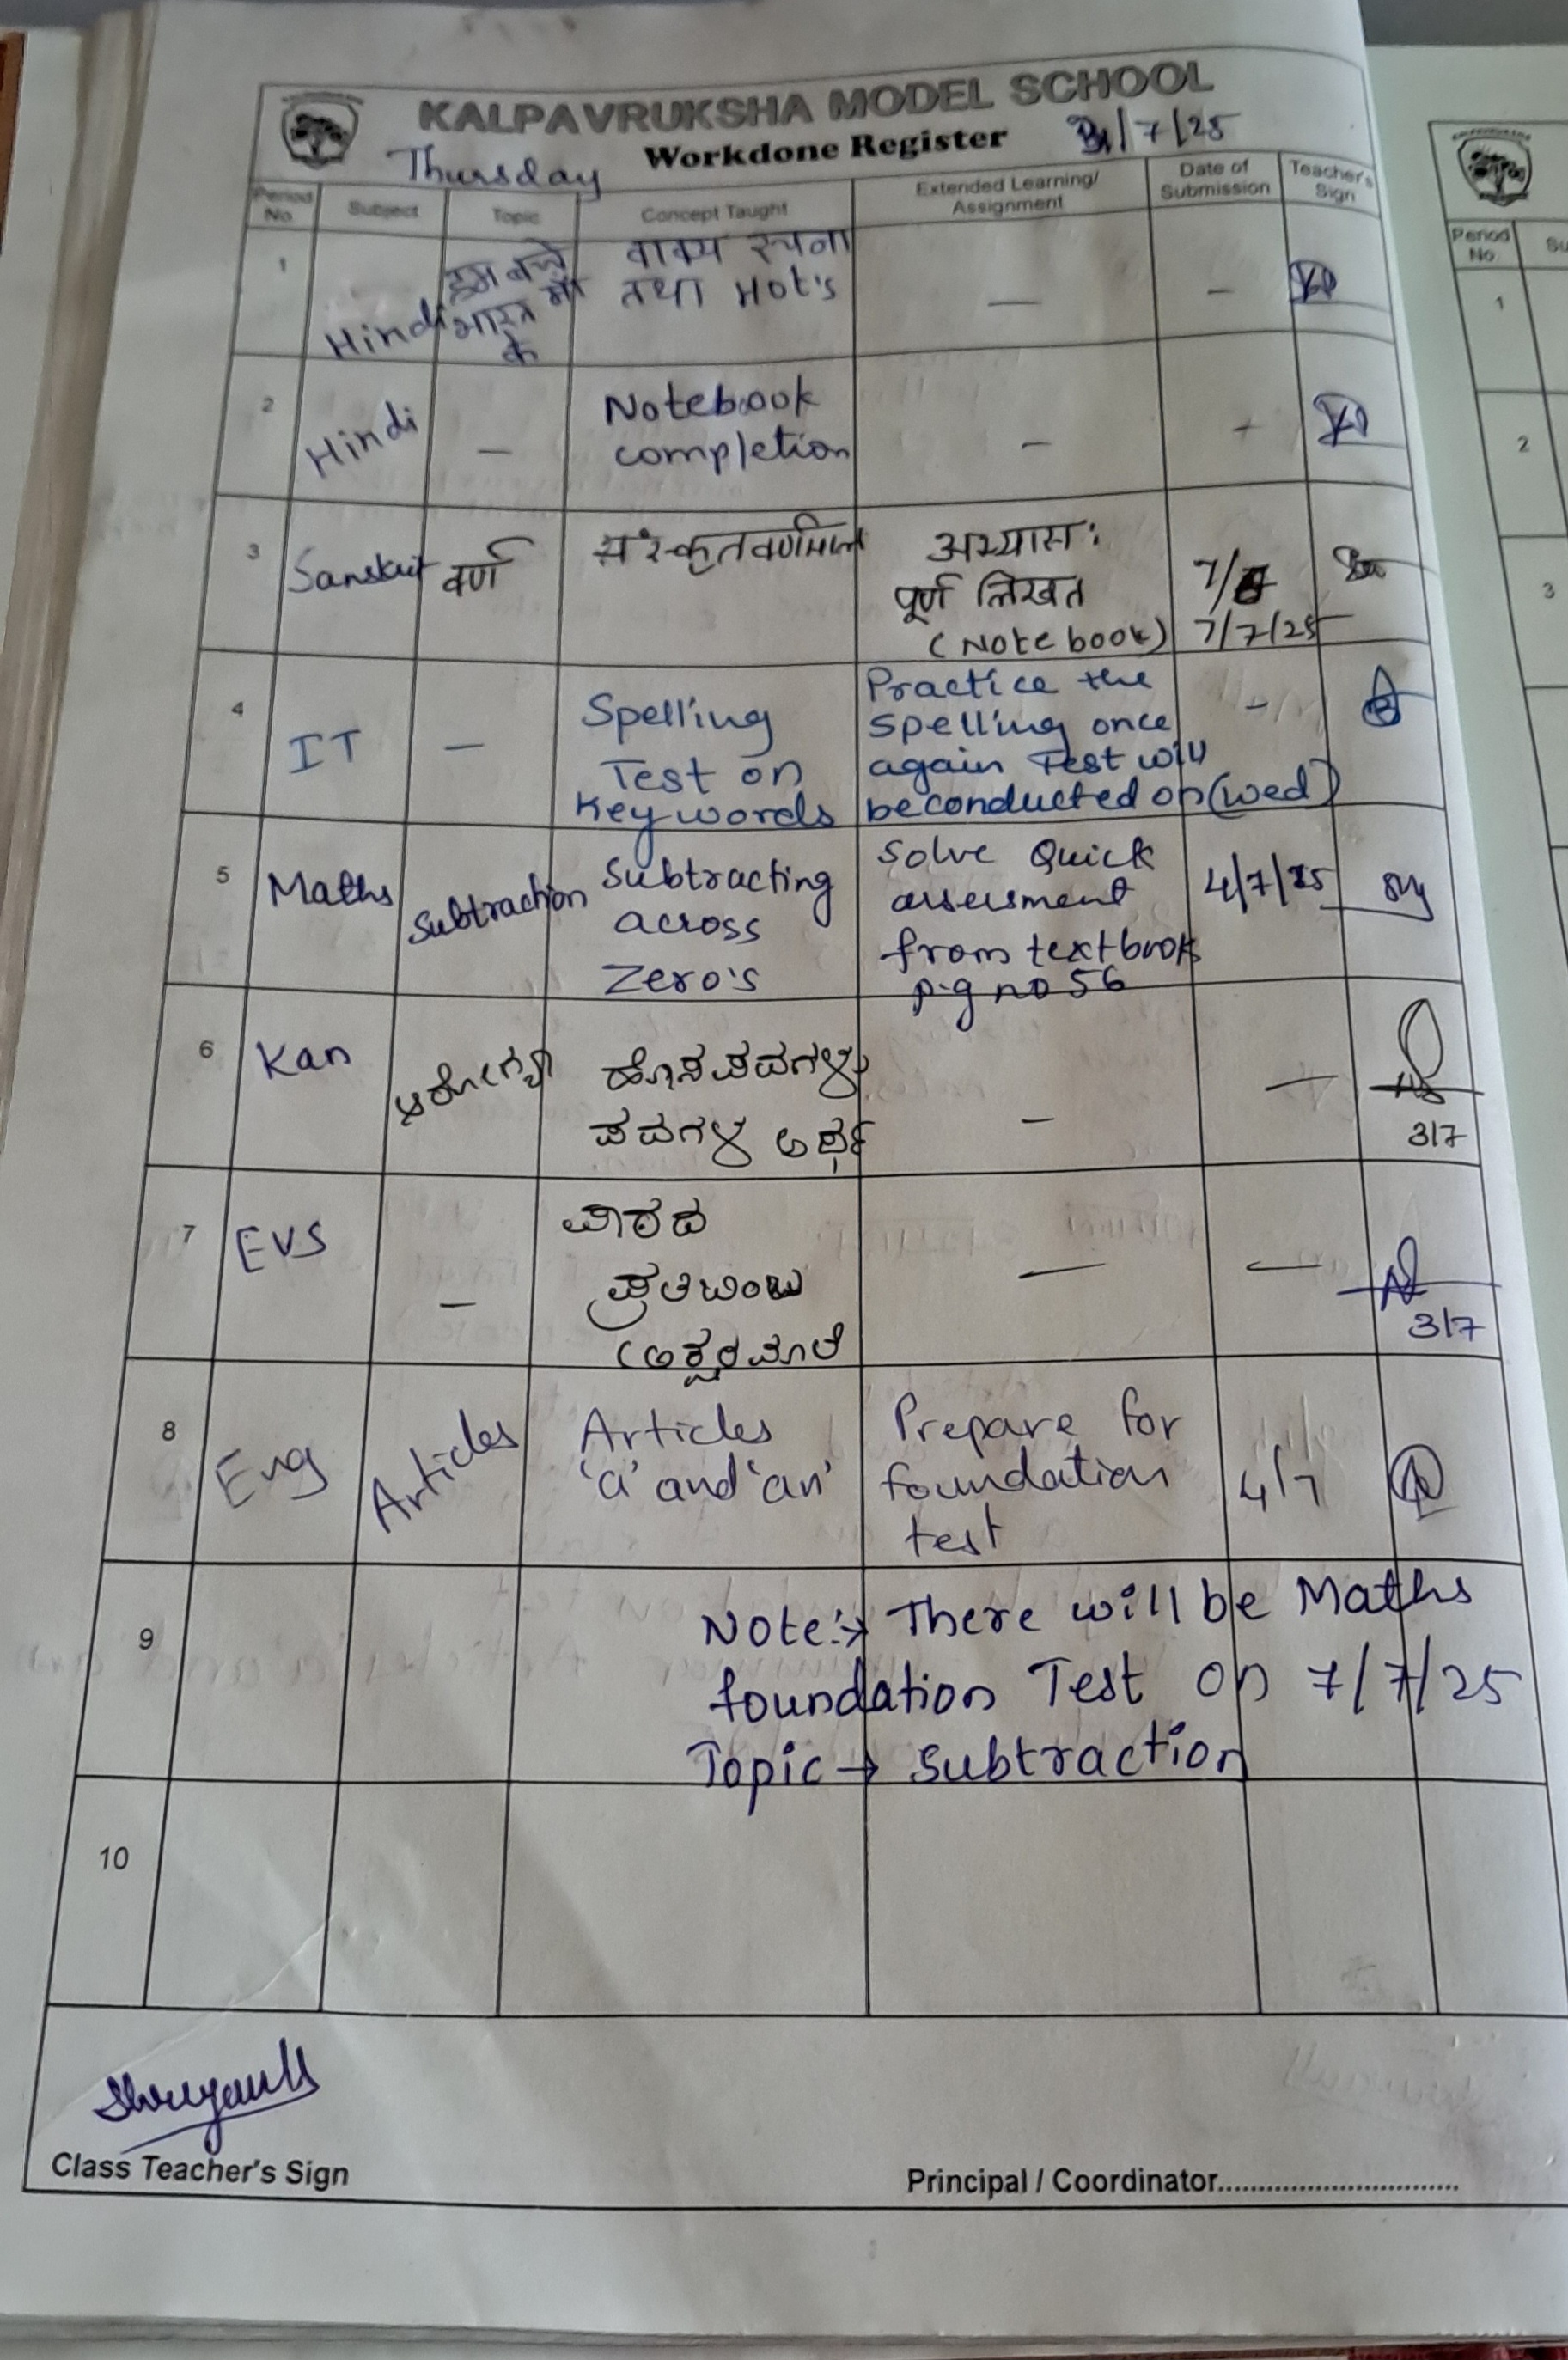 KALPAVRUKSHA MODEL SCHOOL
Workdone Register
Thursday
/7/25
Period No. Subject Topic Concept Taught Extended Learning/ Assignment Date of Submission Teacher's Sign
1 Hindi हम बच्चे भारत माँ के वाक्य रचना तथा Hot's — –
2 Hindi — Notebook completion – –
3 Sanskrit वर्ण संस्कृतवर्णमाला अभ्यासः पूर्ण लिखत (Notebook) 7/7/25
4 IT — Spelling Test on Key words Practice the spelling once again Test will be conducted on (wed) –
5 Maths Subtraction Subtracting across Zero's Solve Quick assessment from textbook p.g no 56 4/7/25
6 Kan ಆರೋಗ್ಯ ಹೊಸ ಪದಗಳು ಪದಗಳ ಅರ್ಥ – — 3/7
7 EVS – ಪಾಠದ ಪ್ರತಿಬಿಂಬ (ಅಕ್ಷರಮಾಲೆ — — 3/7
8 Eng Articles Articles 'a' and 'an' Prepare for foundation test 4/7
9 Note:→ There will be Maths
foundation Test on 7/7/25
Topic → Subtraction
10
Class Teacher's Sign
Principal / Coordinator..............................
Period No
1
2
3